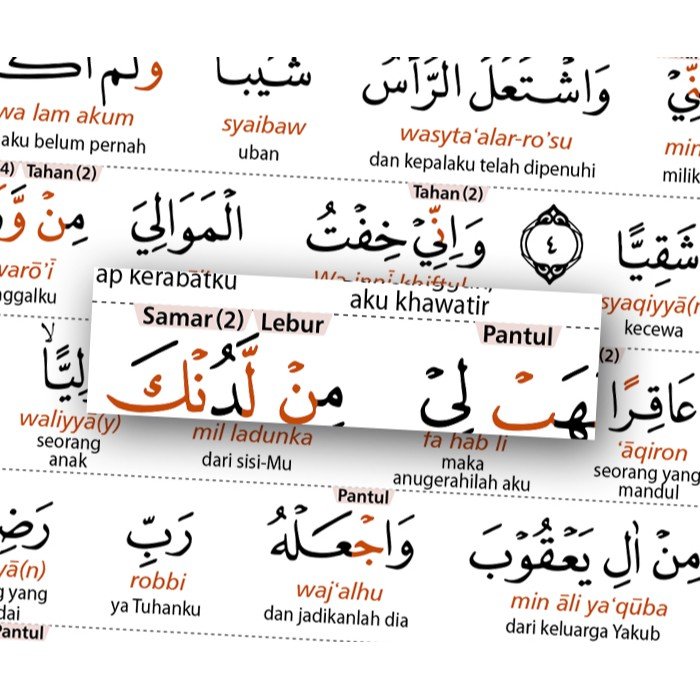 وَاشْتَعَلَ الرَّأْسُ شَيْبًا وَلَمْ أَكُ
wa lam akum syaibaw wasyta‘alar-ro’su min
aku belum pernah uban dan kepalaku telah dipenuhi milik
4) Tahan (2) Tahan (2)
شَقِيًّا ٤ وَاِنِّيْ خِفْتُ الْمَوَالِيَ مِنْ وَّ
syaqiyyā(n
kecewa
ap kerabatku aku khawatir
Samar (2) Lebur Pantul (2)
عَاقِرًا فَهَبْ لِيْ مِنْ لَّدُنْكَ وَلِيًّا
waliyyā(y) mil ladunka fa hab lī ‘āqiron
seorang anak dari sisi-Mu maka anugerahilah aku seorang yang mandul
Pantul
مِنْ اٰلِ يَعْقُوْبَ وَاجْعَلْهُ رَبِّ رَضِ
yā(n) robbi waj‘alhu min āli ya‘qūba
yang ya Tuhanku dan jadikanlah dia dari keluarga Yakub
Pantul